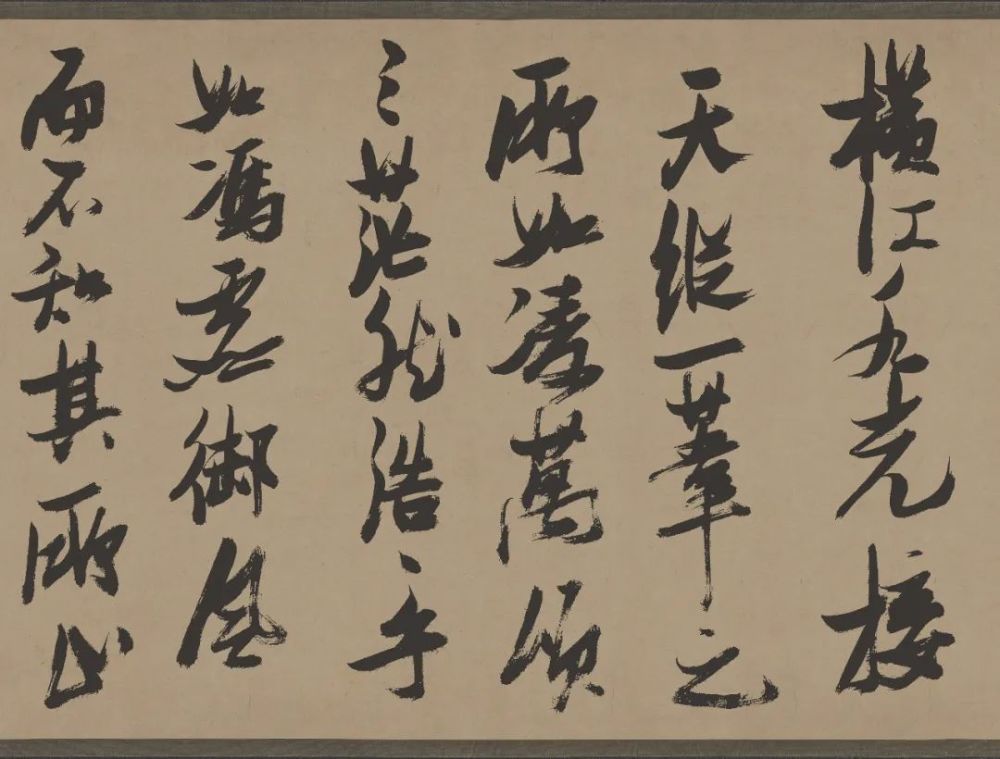 橫江水光接
天縱一葦之
所如淩萬頃
之茫然浩〻乎
如馮虛御風
而不知其所止